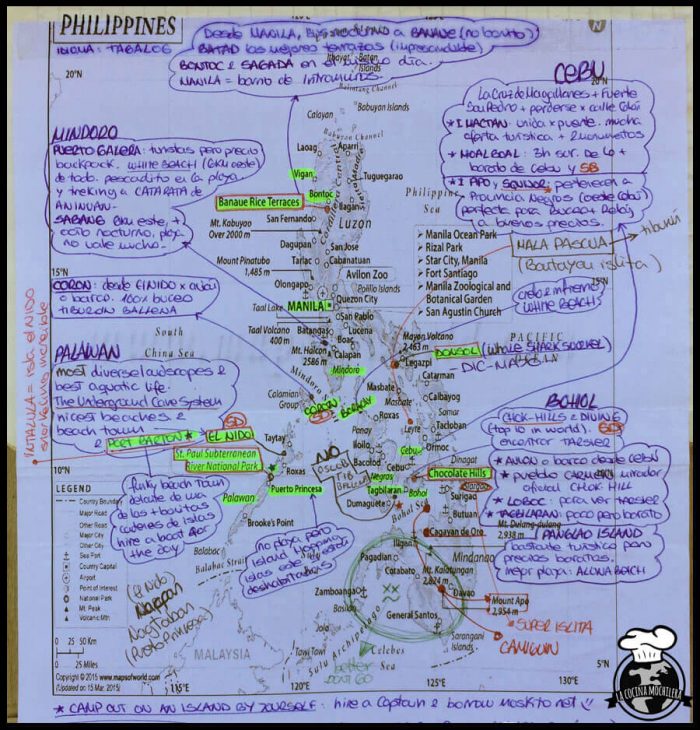 PHILIPPINES
IDIOMA: TAGALOG
Desde MANILA, BUS NOCTURNO a BANAUE (no bonito)
BATAD las mejores terrazas (imprescindible)
BONTOC E SAGADA en el mismo día.
MANILA = barrio de Intramuros.
N
20°N
Itbayat
Batan
Islands
Balintang Channel
Babuyan Islands
Calayan
Babuyan Channel
Laoag
Aparri
Vigan
Tuguegarao
Bontoc
Banaue Rice Terraces
Ilagan
San Fernando
Luzon
Mt. Kabuyoo
Over 2000 m
Dagupan
San Jose
Mount Pinatubo
1,485 m
Tarlac
Cabanatuan
Avilon Zoo
Olongapo
Polillo Islands
Quezon City
MANILA
San Pablo
Taal Lake
Taal Volcano
400 m
Batangas
Lucena
Boac
Mt. Halcon
2586 m
Calapan
Mindoro
Philippine
Sea
CEBU
La Cruz de Magallanes + Fuerte
San Pedro + perderse x calle Colón
* MACTAN: unida x puente. mucha
oferta turística + 2 monumentos
* MOALBOAL: 3h sur. De lo +
barato de Cebu y SD
* I APO, y SIQUIJOR: pertenecen a
Provincia Negros (oeste Cebu)
perfecta para Buceo + Relax
a buenos precios.
Manila Ocean Park
Rizal Park
Star City, Manila
Fort Santiago
Manila Zoological and
Botanical Garden
San Agustin Church
MALAPASCUA
(Bantayan islita)
tiburón
MINDORO
PUERTO GALERA: turistas pero precio
backpack. WHITE BEACH (6km oeste)
de todo. pescadito en la playa
y treking a CATARATA DE
ANINUAN.
SABANG 5km este, +
ocio nocturno, playa
no vale mucho.
15°N
CORON: desde El NIDO x avión
o barco. 100x buceo
TIBURON BALLENA
South
China Sea
PALAWAN
most diverse landscapes &
best aquatic life.
The Underground Cave System
nicest beaches &
beach town
& PORT BARTON *
SD
EL NIDO
St. Paul Subterranean
River National Park
Calamian
Group
CORON
SD
BORACAY
Taytay
Roxas
Puerto Princesa
Palawan
Brooke's Point
Balabac
Balabac Strait
WHITE BEACH
PACIFIC
OCEAN
Mayon Volcano
2,463 m
Legazpi
DONSOL (WHALE SHARK SNORKEL)
Masbate
Catarman
Calbayog
Samar
Tacloban
Roxas
Panay
Iloilo
Bacolod
Cebu
Leyte
Ormoc
Dinagat
Negros
Tagbilaran
Bohol
Chocolate Hills
Dumaguete
Bohol Sea
Surigao
Butuan
Cagayan de Oro
Mt. Dulang-dulang
2,938 m
Iligan
Pagadian
Mindanao
Cotabato
Mt. Kalatungan
2,824 m
Zamboanga
Basilan
Davao
Mount Apo
2,954 m
General Santos
Sarangani
Islands
Jolo
Sulu Archipelago
Tawi Tawi
Celebes
Sea
better
DONT GO
NO
OSLOB
TIB
BALLENA
BOHOL
CHOK-HILLS & DIVING
(top 10 in world). SD
encontrar TARSIER
* ANON o barco desde CEBU
* pueblo CARMEN mirador
oficial CHOK HILL
* LOBOC: para ver TARSIER
* TAGBILARAN: poco pero barato
PANGLAO ISLAND
bastante turístico pero
precios baratitos.
mejor playa: ALONA BEACH
* SUPER ISLITA
CAMIGUIN
funky beach town
delante de una
de las + bonitas
cadenas de islas
hire a boat for
the day
no playa pero
Island Hopping
islas este y están
deshabitadas
(El Nido
Nagtabon
(Puerto Princesa)
10°N
LEGEND
Country Boundary
Major Road
Other Road
Major City
Other City
Sea Port
Country Capital
Airport
Point of Interest
National Park
Mt. Peak
Volcanic Mtn.
0 25 50 Km
0 25 Miles
Copyright © 2015 www.mapsofworld.com
(Updated on 15 Mar, 2015)
MALAYSIA
115°E
120°E
125°E
130°E
5°N
* CAMP OUT ON AN ISLAND BY YOURSELF: hire a Captain & borrow moskito net
LA COCINA MOCHILERA